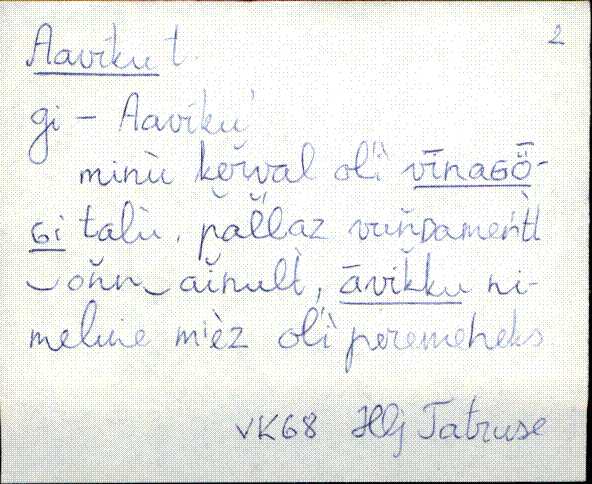 2
Aaviku t.
gi – Aaviku
minù kĕrval olì vīnaGȫ-
Gi talù, palłaz vuňDameńtt
oňn aĭnult, āvĭkku ni-
meline mièz olì peremeheks
VK68 Hlj Tatruse